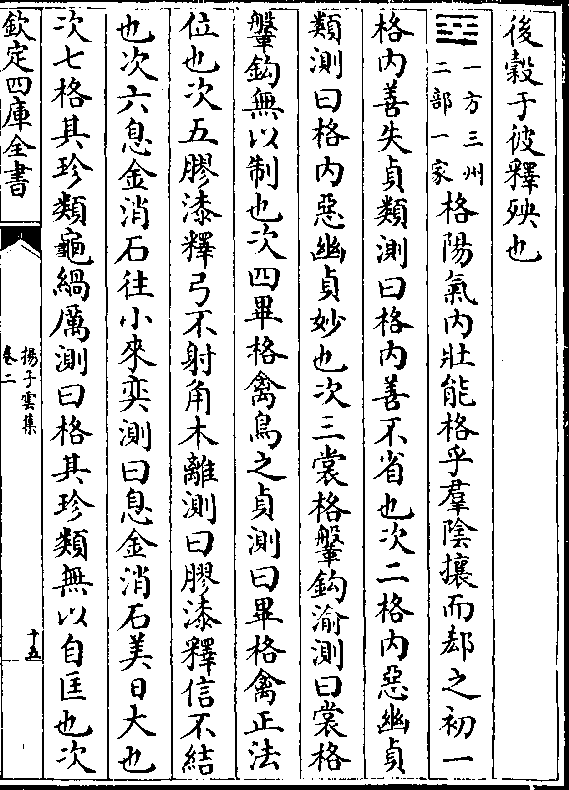 後穀于彼釋殃也
一方三州
二部一家
格陽氣内壯能格乎羣陰攘而郄之初一
格内善失貞類測曰格内善不省也次二格内惡幽貞
類測曰格内惡幽貞妙也次三裳格鞶鈎渝測曰裳格
鞶鈎無以制也次四畢格禽鳥之貞測曰畢格禽正法
位也次五膠漆釋弓不射角木離測曰膠漆釋信不結
也次六息金消石往小來奕測曰息金消石美日大也
次七格其珍類龜緺厲測曰格其珍類無以自匡也次
欽定四庫全書
揚子雲集
卷二
十五